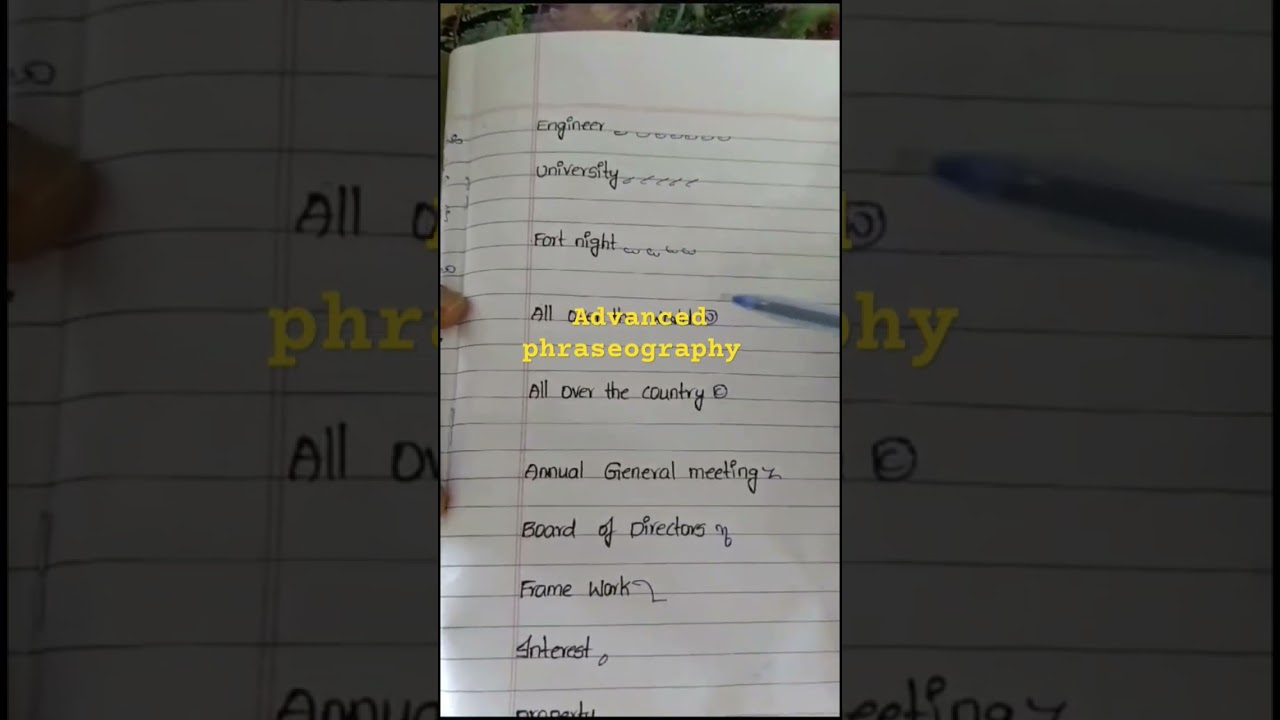 Engineer
University
Fort night
All over the
Advanced
phraseography
All over the country
Annual General meeting
Board of Directors
Frame Work
Interest
property